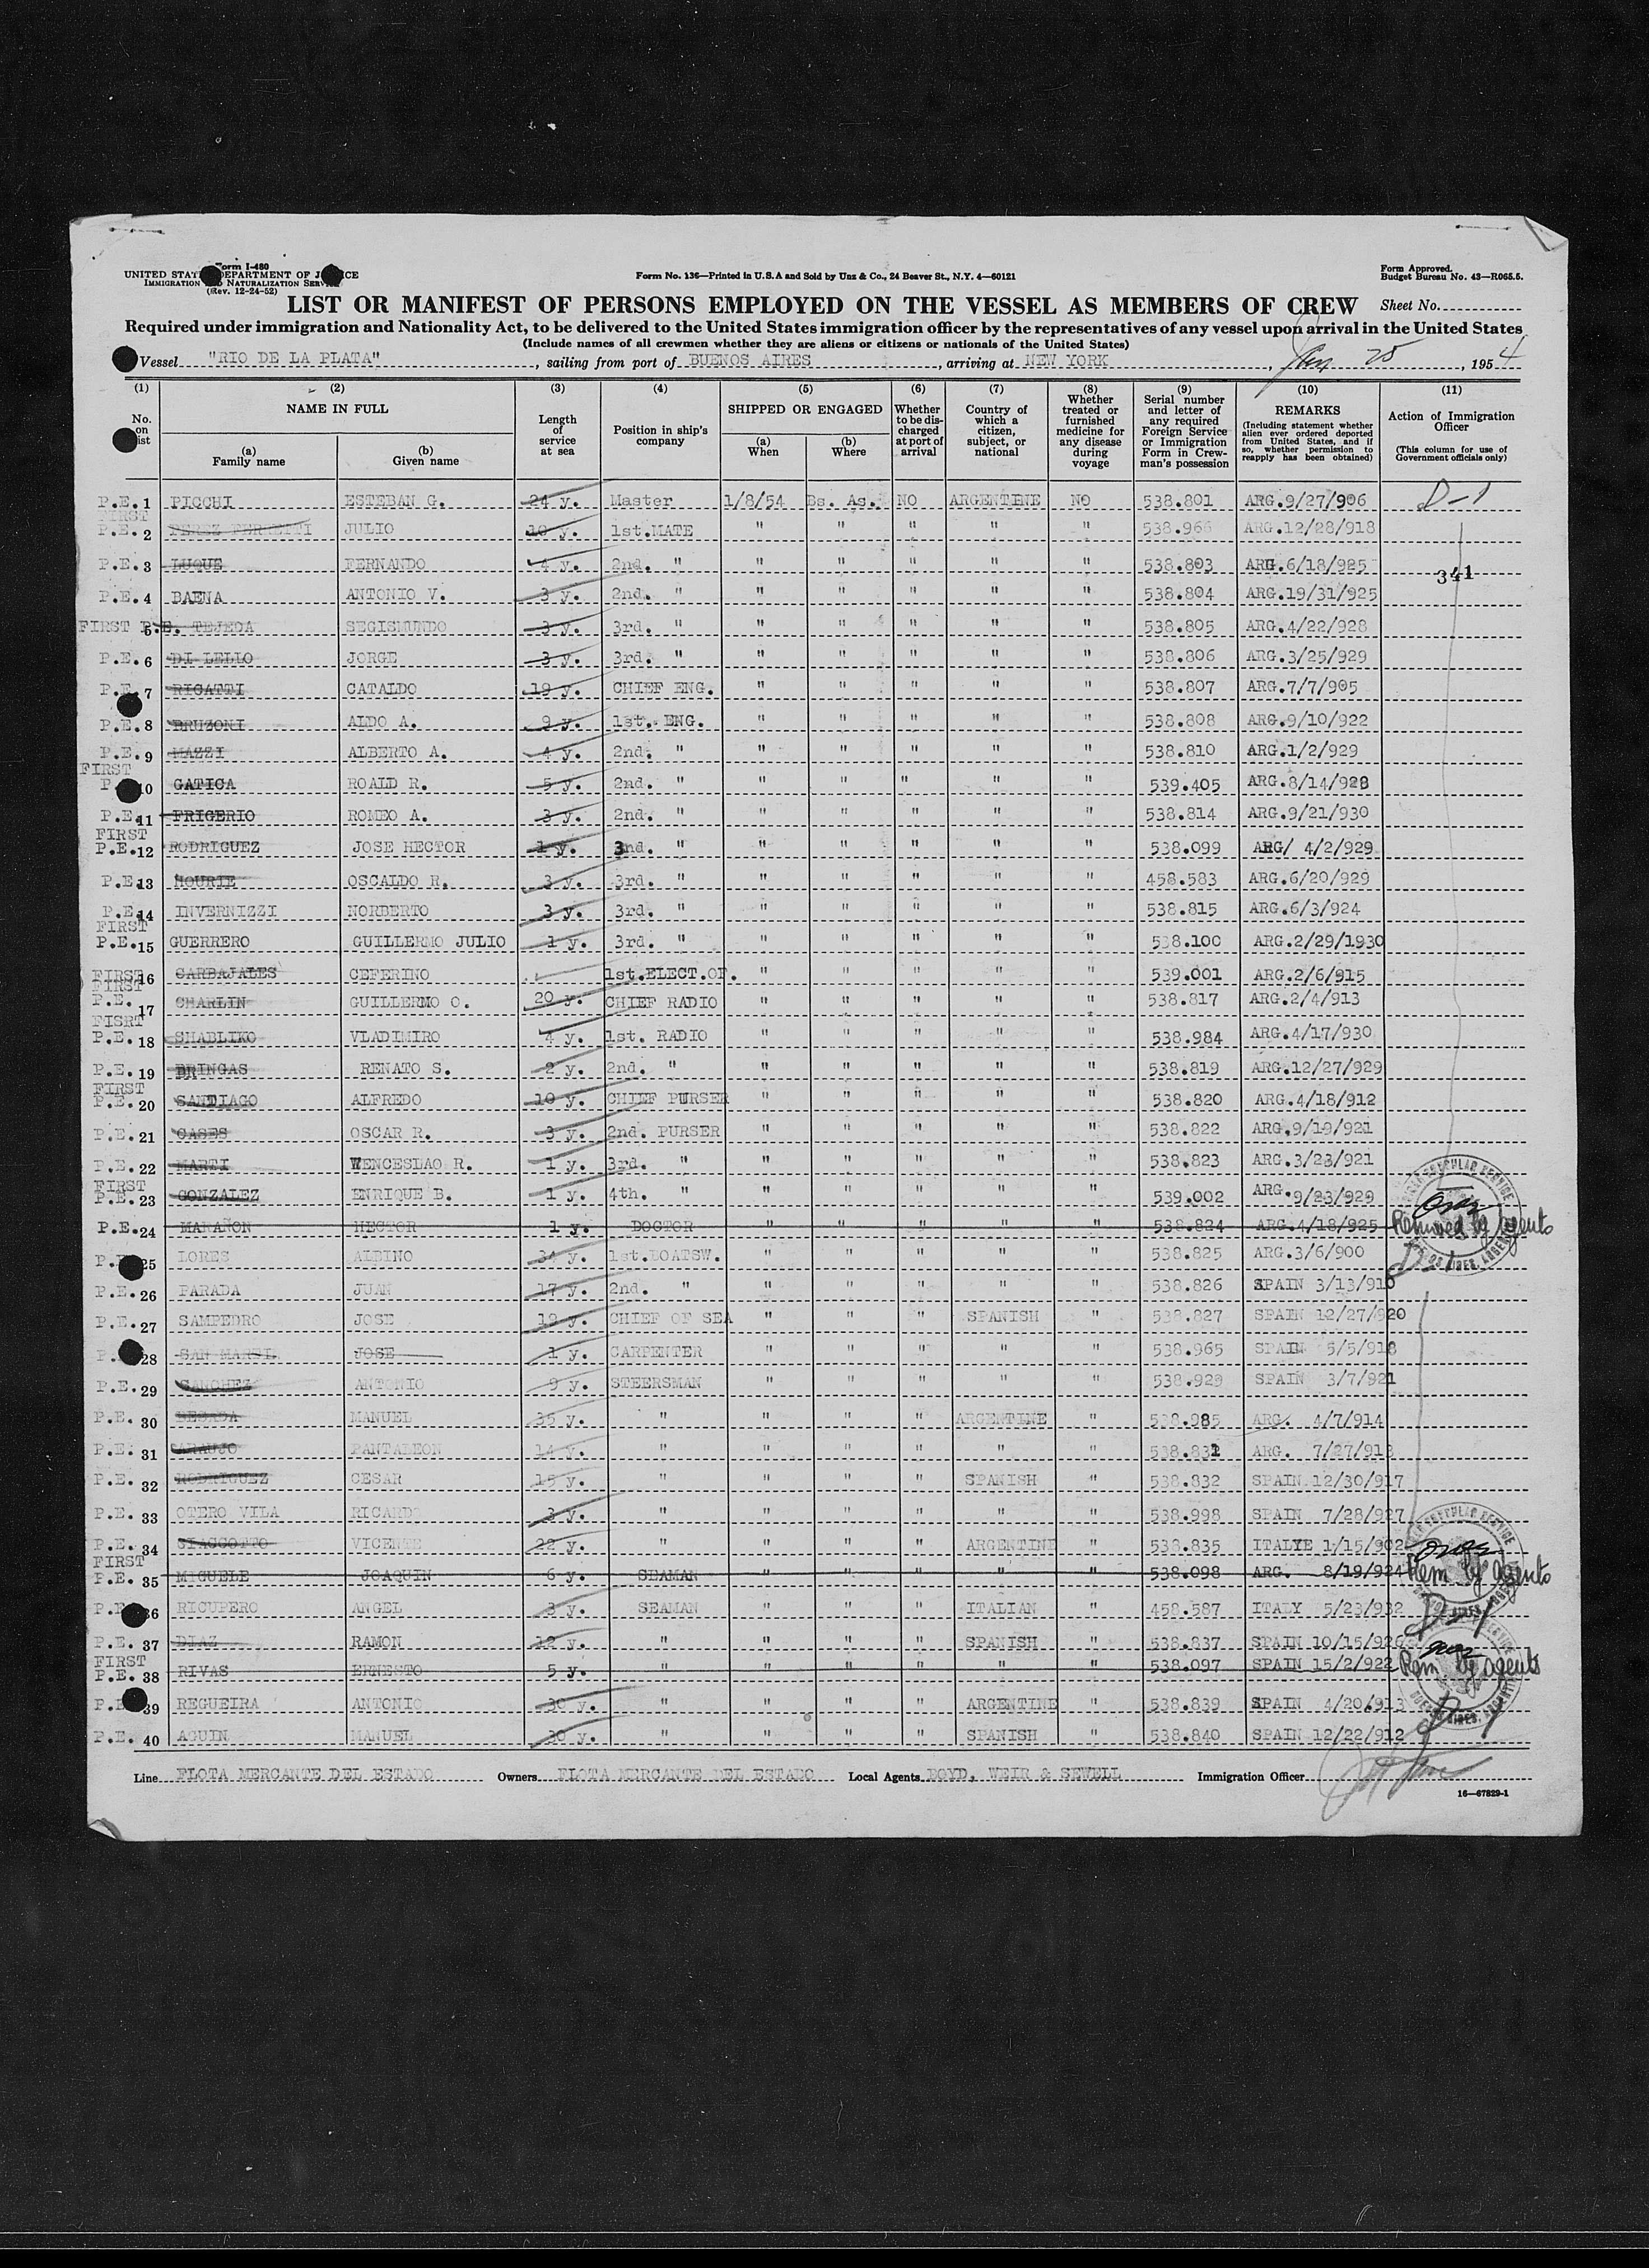 Form I-480
UNITED STATES DEPARTMENT OF JUSTICE
IMMIGRATION AND NATURALIZATION SERVICE
(Rev. 12-24-52)
Form No. 136—Printed in U.S.A and Sold by Unz & Co., 24 Beaver St., N.Y. 4—60121
Form Approved.
Budget Bureau No. 43—R065.5.
LIST OR MANIFEST OF PERSONS EMPLOYED ON THE VESSEL AS MEMBERS OF CREW
Sheet No.
Required under immigration and Nationality Act, to be delivered to the United States immigration officer by the representatives of any vessel upon arrival in the United States
(Include names of all crewmen whether they are aliens or citizens or nationals of the United States)
Vessel "RIO DE LA PLATA", sailing from port of BUENOS AIRES, arriving at NEW YORK, Jan 25, 1954
(1) (2) (3) (4) (5) (6) (7) (8) (9) (10) (11)
No. on list
NAME IN FULL
(a) Family name
(b) Given name
Length of service at sea
Position in ship's company
SHIPPED OR ENGAGED
(a) When
(b) Where
Whether to be discharged at port of arrival
Country of which a citizen, subject, or national
Whether treated or furnished medicine for any disease during voyage
Serial number and letter of any required Foreign Service or Immigration Form in Crewman's possession
REMARKS
(Including statement whether alien ever ordered deported from United States, and if so, whether permission to reapply has been obtained)
Action of Immigration Officer
(This column for use of Government officials only)
P.E. 1 PICCHI ESTEBAN G. 24 y. Master 1/8/54 Bs. As. NO ARGENTINE NO 538.801 ARG.9/27/906 D-1
FIRST
P.E. 2 PEREZ FERRETTI JULIO 10 y. 1st.MATE " " " " " 538.966 ARG.12/28/918
P.E. 3 LUQUE FERNANDO 4 y. 2nd. " " " " " " 538.803 ARG.6/18/925 341
P.E. 4 BAENA ANTONIO V. 3 y. 2nd. " " " " " " 538.804 ARG.19/31/925
FIRST P.E. 5 TEJEDA SEGISMUNDO 3 y. 3rd. " " " " " " 538.805 ARG.4/22/928
P.E. 6 DI LELLO JORGE 3 y. 3rd. " " " " " " 538.806 ARG.3/25/929
P.E. 7 RICATTI CATALDO 19 y. CHIEF ENG. " " " " " 538.807 ARG.7/7/905
P.E. 8 BRUZONI ALDO A. 9 y. 1st. ENG. " " " " " 538.808 ARG.9/10/922
P.E. 9 MAZZI ALBERTO A. 4 y. 2nd. " " " " " " 538.810 ARG.1/2/929
FIRST
P. 10 GATICA ROALD R. 5 y. 2nd. " " " " " " 539.405 ARG.8/14/928
P.E. 11 FRIGERIO ROMEO A. 3 y. 2nd. " " " " " " 538.814 ARG.9/21/930
FIRST
P.E. 12 RODRIGUEZ JOSE HECTOR 1 y. 3nd. " " " " " " 538.099 ARG/ 4/2/929
P.E. 13 MOURIE OSCALDO R. 3 y. 3rd. " " " " " " 458.583 ARG.6/20/929
P.E. 14 INVERNIZZI NORBERTO 3 y. 3rd. " " " " " " 538.815 ARG.6/3/924
FIRST
P.E. 15 GUERRERO GUILLERMO JULIO 1 y. 3rd. " " " " " " 538.100 ARG.2/29/1930
FIRST 16 CARBAJALES CEFERINO 1st.ELECT.OP. " " " " " 539.001 ARG.2/6/915
FIRST
P.E. 17 CHARLIN GUILLERMO O. 20 y. CHIEF RADIO " " " " " 538.817 ARG.2/4/913
FISRT
P.E. 18 SHABLIKO VLADIMIRO 4 y. 1st. RADIO " " " " " 538.984 ARG.4/17/930
P.E. 19 BRINGAS RENATO S. 2 y. 2nd. " " " " " " 538.819 ARG.12/27/929
FIRST
P.E. 20 SANTIAGO ALFREDO 10 y. CHIEF PURSER " " " " " 538.820 ARG.4/18/912
P.E. 21 CASES OSCAR R. 3 y. 2nd. PURSER " " " " " 538.822 ARG.9/19/921
P.E. 22 MARTI WENCESLAO R. 1 y. 3rd. " " " " " " 538.823 ARG.3/23/921
FIRST
P.E. 23 GONZALEZ ENRIQUE B. 1 y. 4th. " " " " " " 539.002 ARG.9/23/929
P.E. 24 MARAÑON HECTOR 1 y. DOCTOR " " " " " 538.824 ARG.4/18/925 Removed by agents
P.E. 25 LORES ALBINO 34 y. 1st.BOATSW. " " " " " 538.825 ARG.3/6/900 D-1
P.E. 26 PARADA JUAN 17 y. 2nd. " " " " " " 538.826 SPAIN 3/13/916
P.E. 27 SAMPEDRO JOSE 19 y. CHIEF OF SEA " " " SPANISH " 538.827 SPAIN 12/27/920
P. 28 SAN MARTIL JOSE 1 y. CARPENTER " " " " " 538.965 SPAIN 5/5/918
P.E. 29 SANCHEZ ANTONIO 9 y. STEERSMAN " " " " " 538.929 SPAIN 3/7/921
P.E. 30 BESADA MANUEL 35 y. " " " " ARGENTINE " 538.985 ARG. 4/7/914
P.E. 31 ARAUJO PANTALEON 14 y. " " " " " " 538.831 ARG. 7/27/913
P.E. 32 RODRIGUEZ CESAR 15 y. " " " " SPANISH " 538.832 SPAIN.12/30/917
P.E. 33 OTERO VILA RICARDO 3 y. " " " " " " 538.998 SPAIN 7/28/927
P.E. 34 SIACCOTTO VICENTE 22 y. " " " " ARGENTINE " 538.835 ITALYE 1/15/902
FIRST
P.E. 35 MIGUELE JOAQUIN 6 y. SEAMAN " " " " " 538.098 ARG. 8/19/924 Rem by agents
P.E. 36 RICUPERO ANGEL 3 y. SEAMAN " " " ITALIAN " 458.587 ITALY 5/23/932 D-1
P.E. 37 DIAZ RAMON 12 y. " " " " SPANISH " 538.837 SPAIN 10/15/926
FIRST
P.E. 38 RIVAS ERNESTO 5 y. " " " " " " 538.097 SPAIN 15/2/922 Rem by agents
P.E. 39 REGUEIRA ANTONIO 30 y. " " " " ARGENTINE " 538.839 SPAIN 4/20/913 D-1
P.E. 40 AGUIN MANUEL 30 y. " " " " SPANISH " 538.840 SPAIN 12/22/912
Line FLOTA MERCANTE DEL ESTADO Owners FLOTA MERCANTE DEL ESTADO Local Agents BOYD, WEIR & SEWELL Immigration Officer
16—67829-1